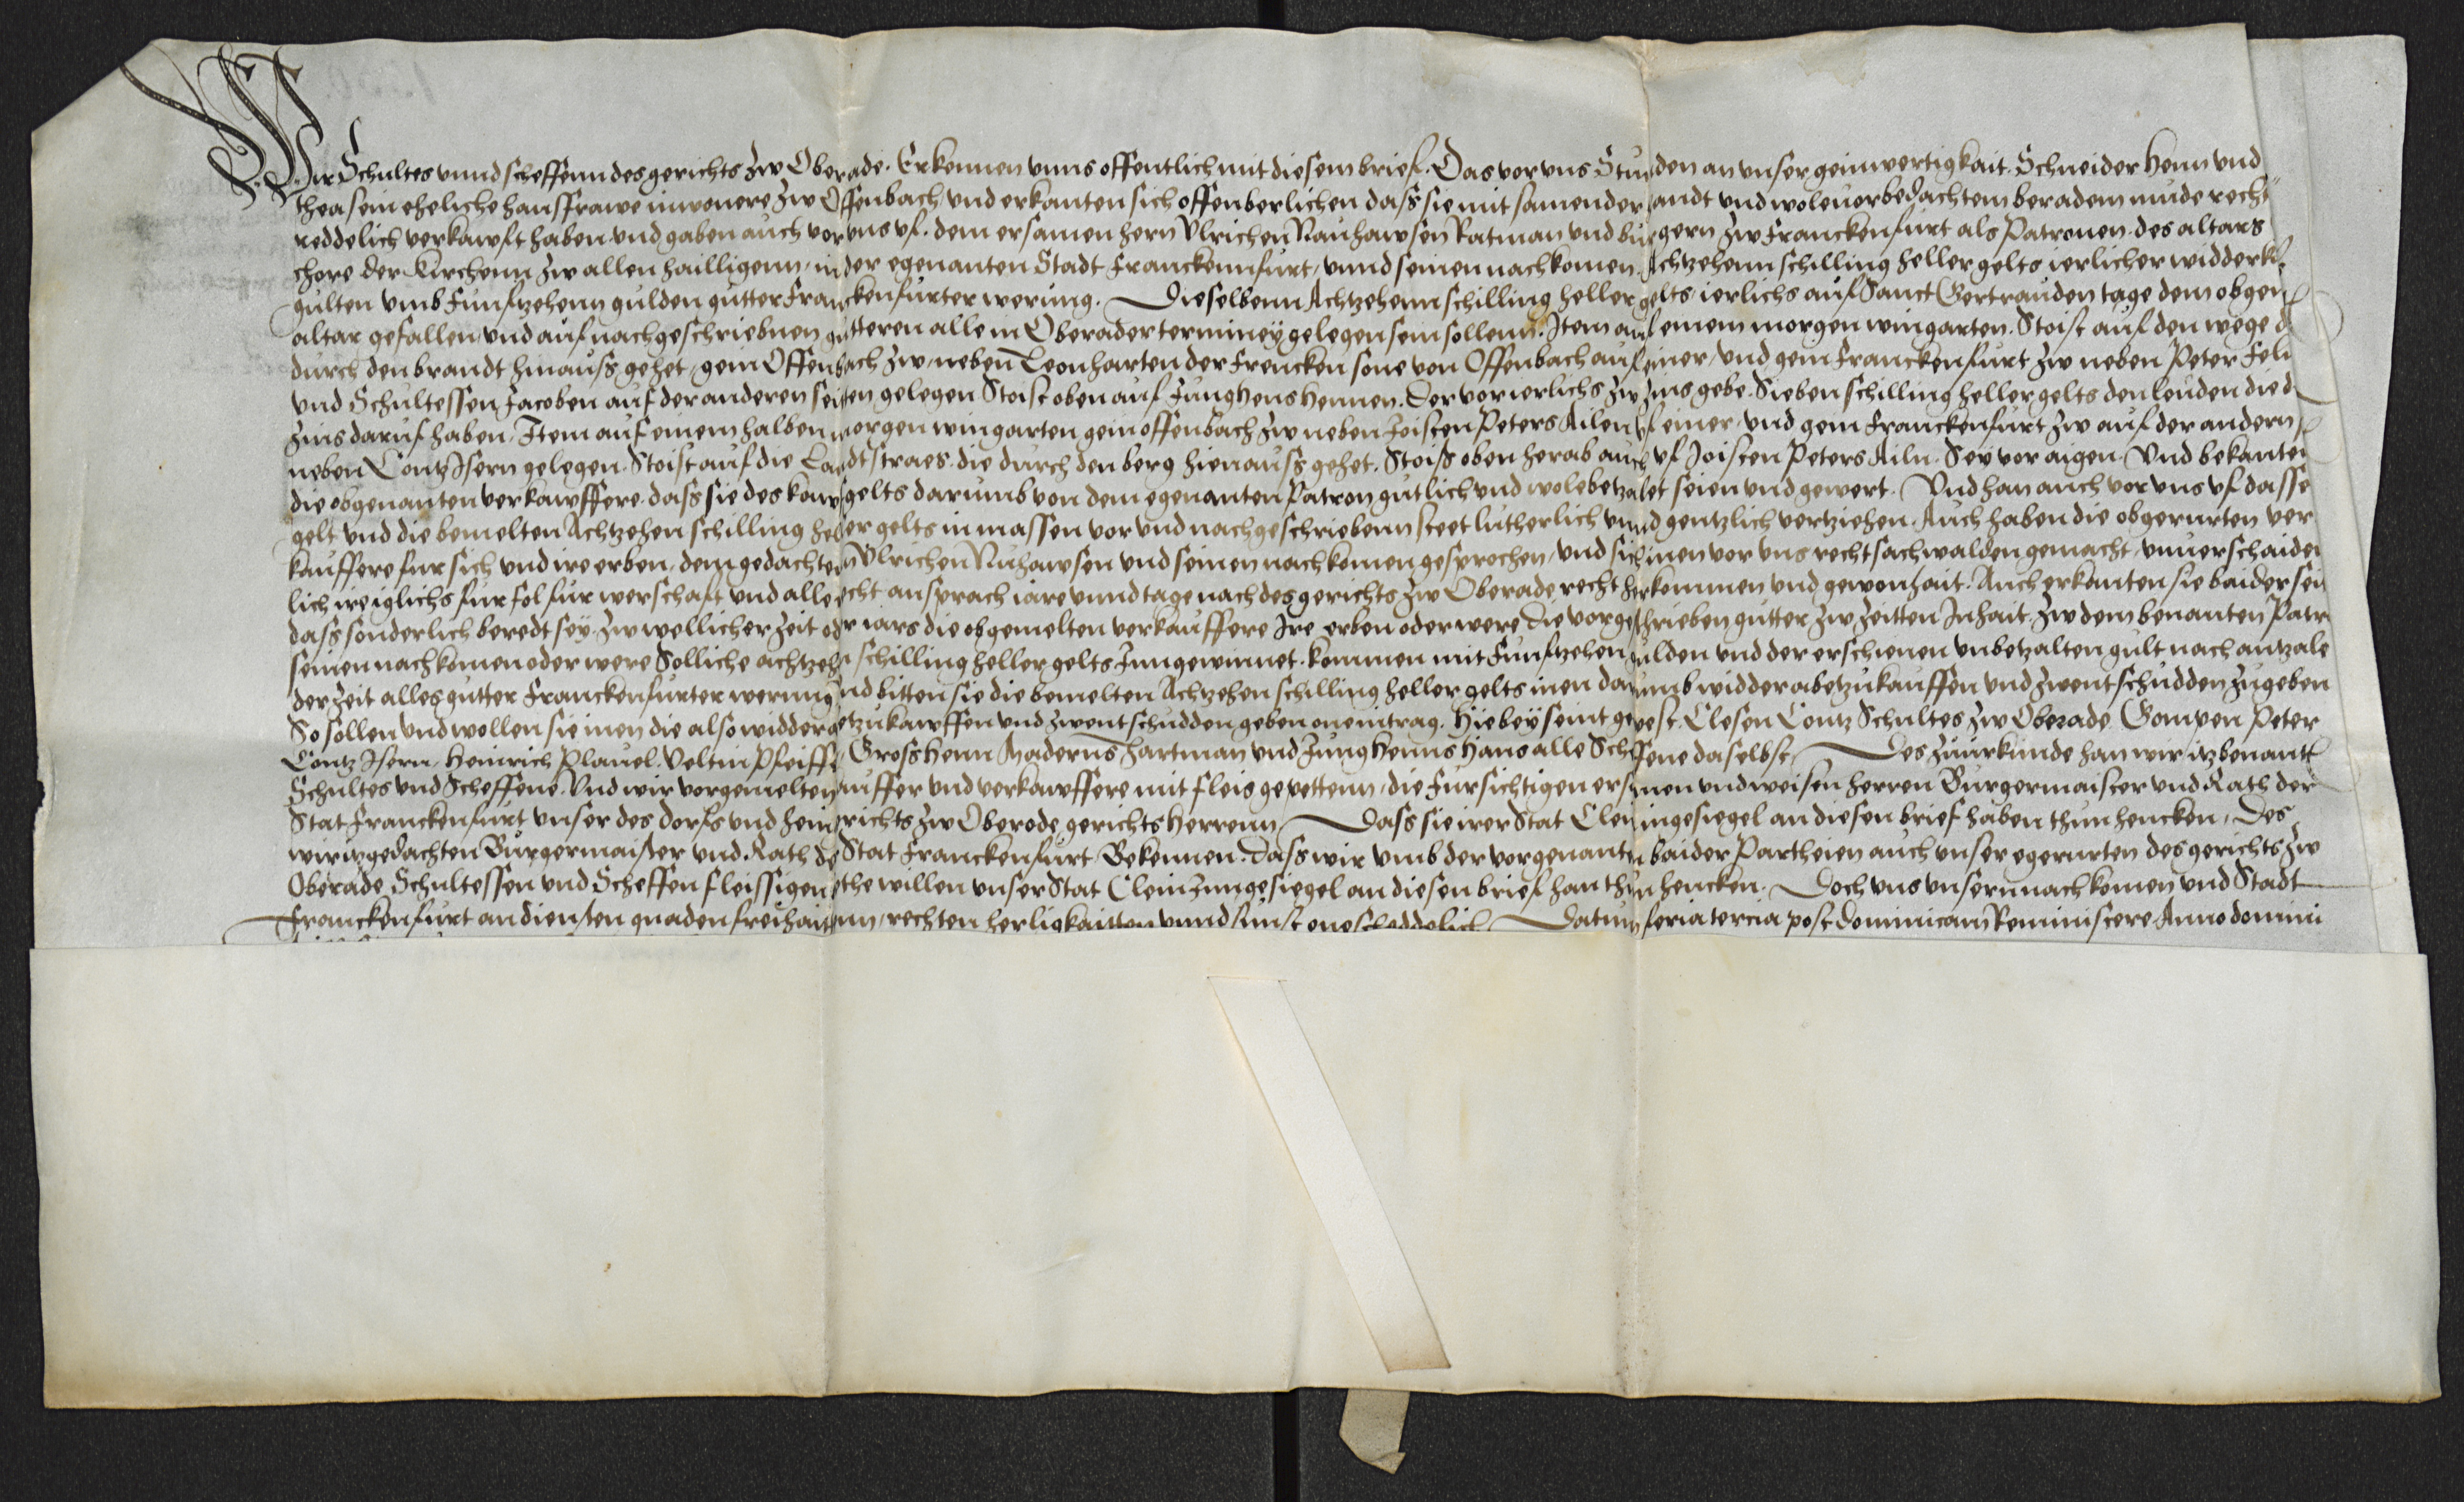 Wir Schultes vnnd scheffenn des gerichts zw Oberade. Erkennen vnns offentlich mit diesem brief. Das vor vns Stunden an vnser geinwertigkait. Schneider Henn vnd
thea sein eheliche hausfrawe inwonere zw Offenbach vnd erkanten sich offenberlichen dass sie mit samender handt vnd woleuorbedachtem beradem mude recht
reddelich verkawft haben vnd gaben auch vor vns vf. dem ersamen hern Vlrichen Nauhawsen Ratman vnd burgern zw Franckenfurt als Patronen des altars
chore der Kirchenn zw allen hailligenn, in der egenanten Stadt Franckennfurt, vnnd seinen nachkomen. Achtzehenn schilling heller gelts ierlicher widderk
gulten vmb Funftzehenn gulden gutter Franckenfurter werung. Dieselbenn Achtzehenn schilling heller gelts ierlichs auf Sanct Gertrauden tage dem obgen
altar gefallen vnd auf nachgeschriebnen gutteren alle in Oberader terminey gelegen sein sollenn. Item auf einem morgen wingarten. Stoist auf den wege d
durch den brandt hinauss gehet, gein Offenbach zw neben Leonharten der Frencken sone von Offenbach auf einer, vnd gein Franckenfurt zw neben Peter Fel
vnd Schultessen Jacoben auf der anderen seitten gelegen Stoist oben auf Jung Hens Hennen. Der vor ierlichs zw zins gebe. Sieben schilling heller gelts den leuden die d
zins daruf haben. Item auf einem halben morgen wingarten gein offenbach zw neben Joisten Peters Ailen vf einer, vnd gein Franckenfurt zw auf der andern s
neben Contz Isern gelegen. Stoist auf die Landtstraes. die durch den berg hienauss gehet. Stoiss oben herab auch vf Joisten Peters Ailn. Sey vor aigen. Vnd bekanten
die obgenanten verkawffere. dass sie des kawfgelts darumb von dem egenanten Patron gutlich vnd wole betzalet seien vnd gewert. Vnd han auch vor vns vf dasse
gelt vnd die bemelten Achtzehen schilling heller gelts in massen vor vnd nachgeschriebenn steet lutherlich vnnd gentzlich vertziehen. Auch haben die obgerurten ver
kauffere fur sich vnd ire erben, dem gedachten Vlrichen Nuhawsen vnd seinen nachkomen gesprochen, vnd sich inen vor vns recht sachwalden gemacht, vnuerschaiden
lich ire iglichs fur fol fur werschaft vnd alle recht ansprach iare vnnd tage nach des gerichts zw Oberade recht herkommen vnd gewonhait. Auch erkanten sie baider seit
dass sonderlich beredt sey. zw wellicher zeit oder iars die obgemelten verkauffere Ire erben oder were die vorgeschrieben gutter zw zeitten Inhait. zw dem benanten Patr
seinen nachkomen oder were Solliche achtzehen schilling heller gelts Inngewinnet. kommen mit Funftzehen gulden vnd der erschienen vnbetzalten gult nach antzale
der zeit alles gutter Franckenfurter werung vnd bitten sie die bemelten Achtzehen schilling heller gelts inen darumb widder abetzukauffen vnd zw entschudden zugeben
So sollen vnd wollen sie inen die also widder abetzukawffen vnd zw entschudden geben on eintrag. Hie bey seint gewest. Clesen Contz Schultes zw Oberade. Gompen Peter
Contz Isern, Heinrich Plauel. Veltin Pfeiffer Gross Henn Maderns Hartman vnd Jung Henns Hans alle Scheffene daselbst. Des zu urkunde han wir itzbenantt
Schultes vnd Scheffene. Vnd wir vorgemelten kauffer vnd verkawffere mit fleis gepettenn, die Fursichtigen ersamen vnd weisen herren Burgermaister vnd Rath der
Stat Franckenfurt vnser des dorfs vnd heingerichts zw Oberode gerichts Herrenn Dass sie irer Stat Clein ingesiegel an diesen brief haben thun hencken, Des
wir itzgedachten Burgermaister vnd Rath der Stat Franckenfurt Bekennen. Dass wir vmb der vorgenanten baider Partheien auch vnser egerurten des gerichts zw
Oberade Schultessen vnd Scheffen fleissigen bethe willen vnser Stat Clein Inngesiegel an diesen brief han thun hencken. Doch vns vnsern nachkomen vnd Stadt
Franckenfurt an diensten gnaden freihaitenn, rechten herligkaitten vnnd sunst oneschedelich Datum feria tercia post dominicam Reminiscere Anno domini